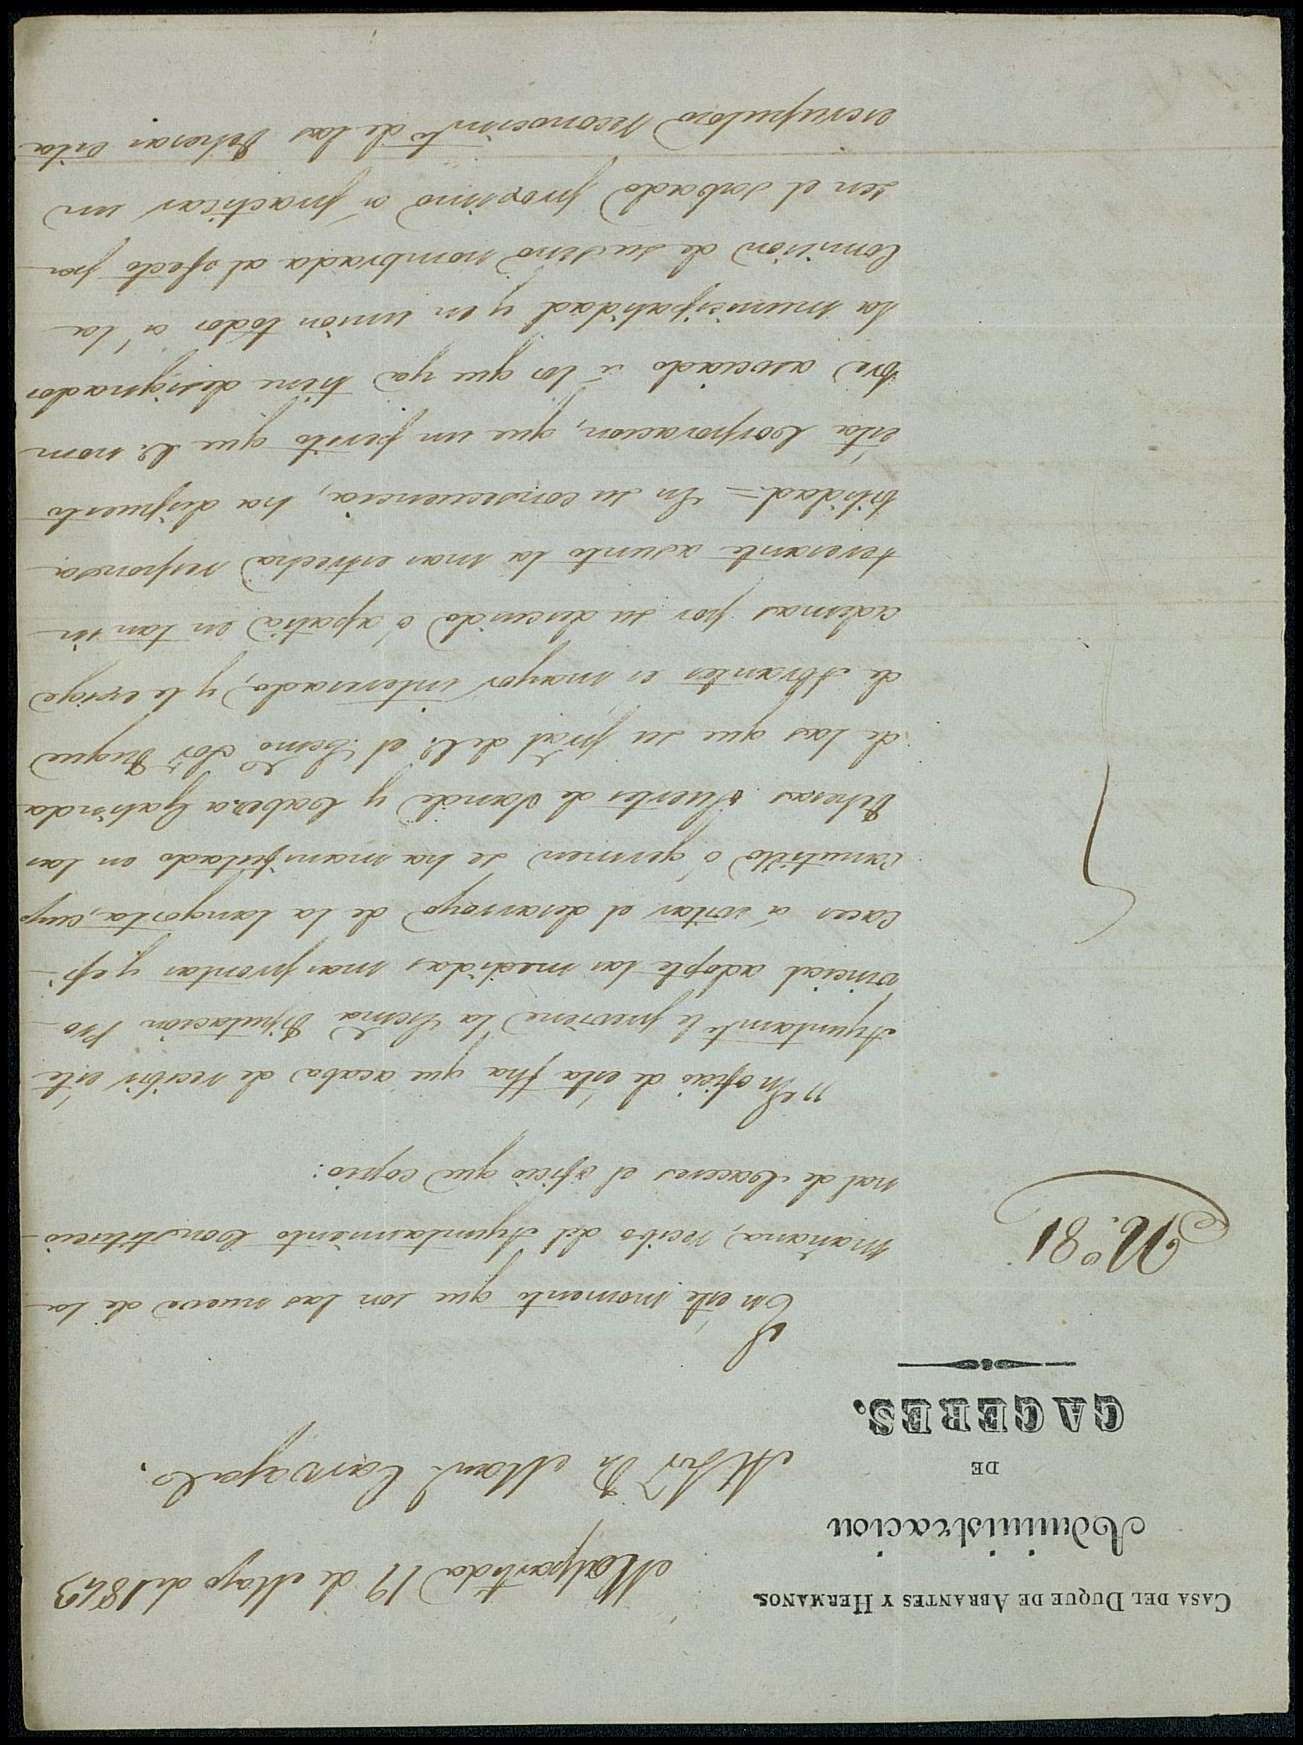 CASA DEL DUQUE DE ABRANTES Y HERMANOS.
Administracion
DE
CACERES.
Malpartida 19 de Mayo de 1843
Al Sr. Dn Manl Carvajal.
N.º 81
En este momento que son las nueve de la
mañana, recibo del Ayuntamiento Constitucio-
nal de Caceres el oficio que copio:
"En oficio de esta fha que acaba de recibir este
Ayuntamto le previene la Ecsma Diputacion Pro-
vincial adopte las medidas mas prontas y efi-
caces á evitar el desarroyo de la langosta, cuyo
canutillo ó germen se ha manifestado en las
Dehesas Suertes de Sande y Cabeza Gatinda
de las que su pral del el Ecsmo Sor Duque
de Abrantes es mayor interesado, y le ecsige
ademas por su descuido ó apatia en tan in-
teresante asunto la mas estrecha responsa-
bilidad = En su consecuencia, ha dispuesto
esta Corporacion, que un perito que V. nom-
bre asociado á los que ya tiene designados
la municipalidad y en union todos á la
Comision de su seno nombrada al efecto pa-
sen el sabado procsimo á practicar un
escrupuloso reconocimto de las Dehesas cita-